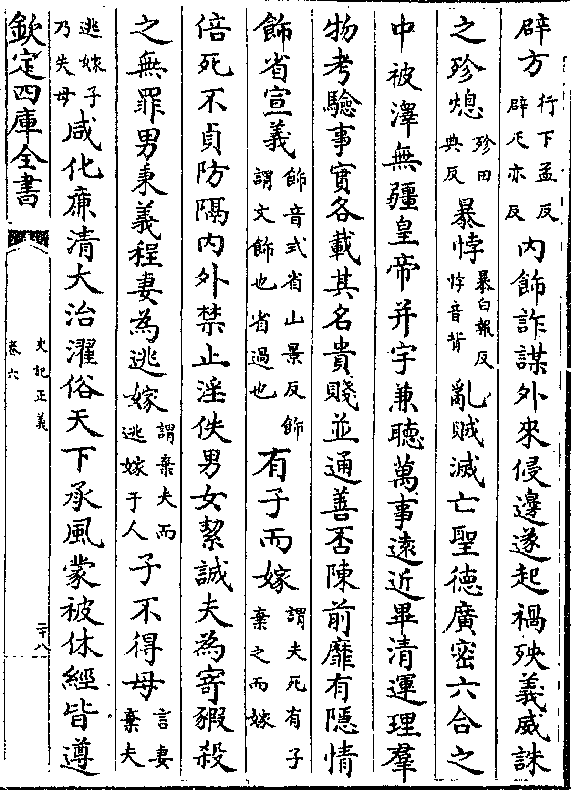 辟方行下孟反辟疋亦反内飾詐謀外來侵邊遂起禍殃義威誅
之殄熄殄田典反暴悖暴白報反悖音背亂賊滅亡聖德廣密六合之
中被澤無疆皇帝并宇兼聽萬事遠近畢清運理羣
物考驗事實各載其名貴賤並通善否陳前靡有隱情
飾省宣義飾音式省山景反飾謂文飾也省過也有子而嫁謂夫死有子棄之而嫁
倍死不貞防隔内外禁止淫佚男女絜誠夫為寄豭殺
之無罪男秉義程妻為逃嫁謂棄夫而逃嫁于人子不得母言妻棄夫
逃嫁子乃失母咸化廉清大治濯俗天下承風蒙被休經皆遵
欽定四庫全書
史記正義
卷六
二十八